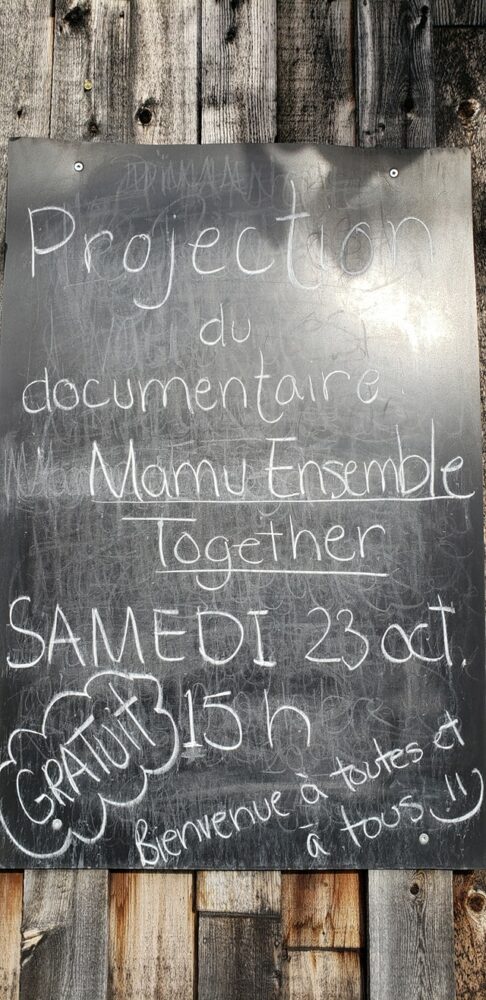 Projection
du
documentaire
Mamu Ensemble
Together
SAMEDI 23 oct.
15 h
GRATUIT
Bienvenue à toutes et
à tous